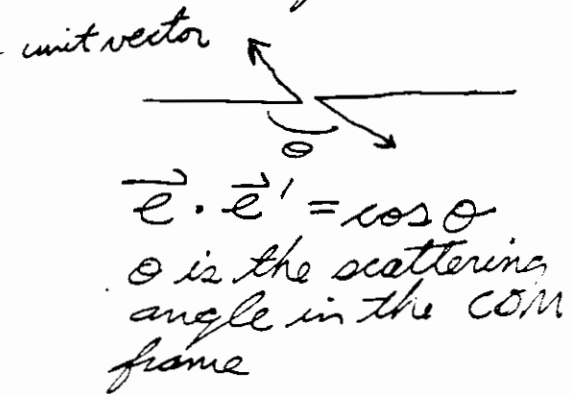 - unit vector
θ
e⃗ · e⃗ ′ = cos θ
θ is the scattering
angle in the COM
frame